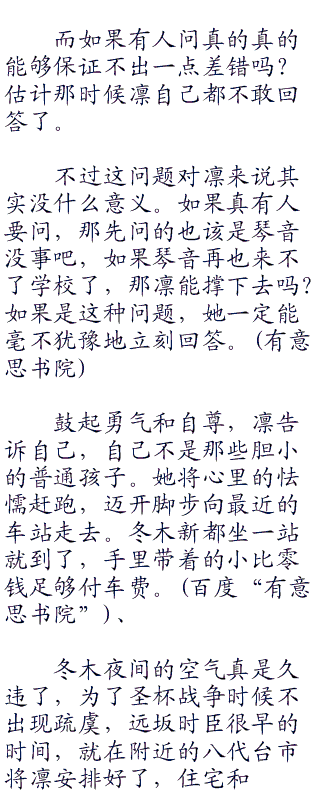 而如果有人问真的真的
能够保证不出一点差错吗?
估计那时候凛自己都不敢回
答了。
不过这问题对凛来说其
实没什么意义。如果真有人
要问，那先问的也该是琴音
没事吧，如果琴音再也来不
了学校了，那凛能撑下去吗?
如果是这种问题，她一定能
毫不犹豫地立刻回答。(有意
思书院)
鼓起勇气和自尊，凛告
诉自己，自己不是那些胆小
的普通孩子。她将心里的怯
懦赶跑，迈开脚步向最近的
车站走去。冬木新都坐一站
就到了，手里带着的小比零
钱足够付车费。(百度“有意
思书院”)、
冬木夜间的空气真是久
违了，为了圣杯战争时候不
出现疏虞，远坂时臣很早的
时间，就在附近的八代台市
将凛安排好了，住宅和